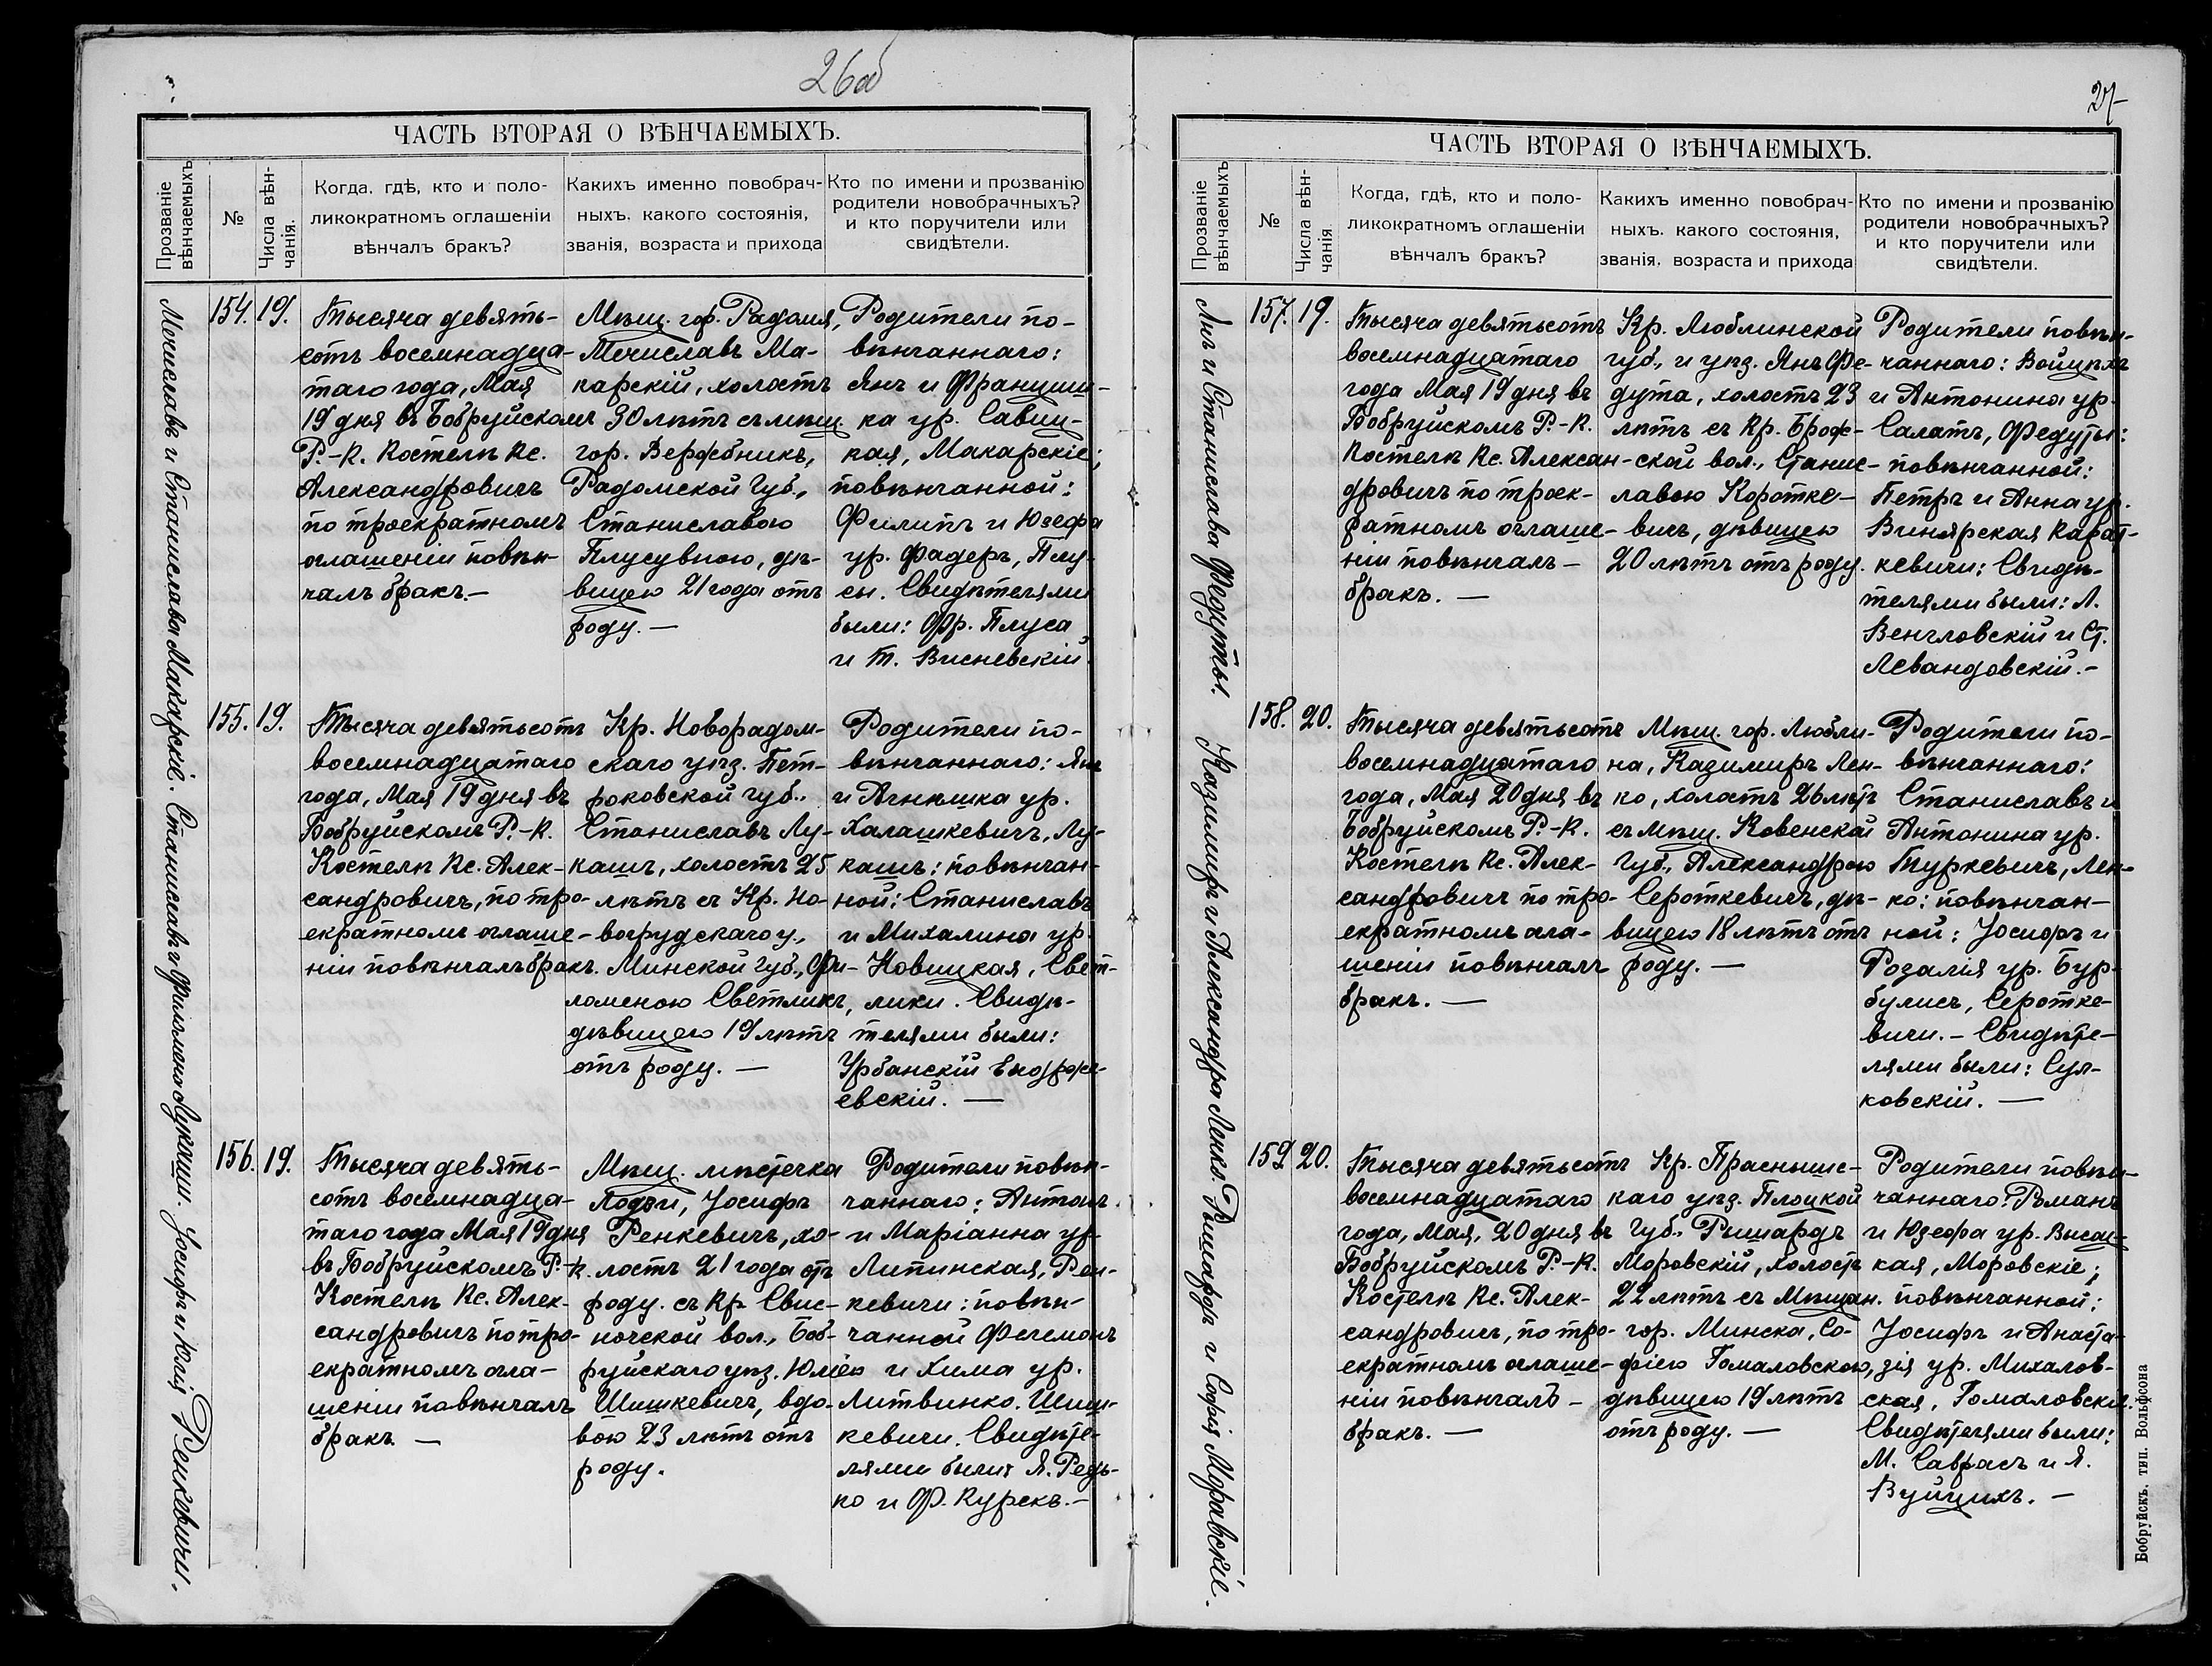 26об
ЧАСТЬ ВТОРАЯ О ВѢНЧАЕМЫХЪ.
Прозваніе
вѣнчаемыхъ
№
Числа вѣн-
чанія.
Когда, гдѣ, кто и поло-
ликократномъ оглашеніи
вѣнчалъ бракъ?
Какихъ именно новобрач-
ныхъ, какого состоянія,
званія, возраста и прихода
Кто по имени и прозванію
родители новобрачныхъ?
и кто поручители или
свидѣтели.
Мечиславъ и Станислава Макарскіе.
154.
19.
Тысяча девять-
сотъ восемнадца-
таго года, Мая
19 дня въ Бобруйскомъ
Р.-К. Костелѣ Кс.
Александровичъ
по троекратномъ
оглашеніи повѣн-
чалъ бракъ.—
Мѣщ. гор. Радомя,
Мечиславъ Ма-
карскій, холостъ
30 лѣтъ съ мѣщ.
гор. Вержбникъ,
Радомской Губ.,
Станиславою
Плусувною, дѣ-
вицею 21 года отъ
роду.—
Родители по-
вѣнчаннаго:
Янъ и Францишь-
ка ур. Савиц-
кая, Макарскіе;
повѣнчанной:
Филипъ и Юзефа
ур. Фадеръ, Плу-
сы. Свидѣтелями
были: Фр. Плуса
и Т. Висневскій.
Станиславъ и Филомена Лукаши.
155.
19.
Тысяча девятьсотъ
восемнадцатаго
года, Мая 19 дня въ
Бобруйскомъ Р.-К.
Костелѣ Кс. Алек-
сандровичъ, по тро-
екратномъ оглаше-
ніи повѣнчалъ бракъ.
Кр. Новорадом-
скаго уѣз. Пет-
роковской губ.,
Станиславъ Лу-
кашъ, холостъ 25
лѣтъ съ Кр. Но-
вогрудскаго у.,
Минской Губ., Фи-
ломеною Светликъ,
дѣвицею 19 лѣтъ
отъ роду.—
Родители по-
вѣнчаннаго: Янъ
и Агнѣшка ур.
Халашкевичъ, Лу-
кашъ: повѣнчан-
ной: Станиславъ
и Михалина ур.
Новицкая, Свет-
лики. Свидѣ-
телями были:
Урбанскій Ендрже-
евскій.—
Іосифъ и Юлія Ренкевичи.
156.
19.
Тысяча девять-
сотъ восемнадца-
таго года Мая 19 дня
въ Бобруйскомъ Р.-К.
Костелѣ Кс. Алек-
сандровичъ по тро-
екратномъ огла-
шеніи повѣнчалъ
бракъ.—
Мѣщ. мѣстечка
Лодзи, Іосифъ
Ренкевичъ, хо-
лостъ 21 года отъ
роду. съ Кр. Свис-
лочской вол., Боб-
руйскаго уѣз. Юлією
Шишкевичъ, вдо-
вою 23 лѣтъ отъ
роду.
Родители повѣн-
чаннаго: Антонъ
и Маріанна ур.
Липинская, Рен-
кевичи: повѣн-
чанной Фелемонъ
и Хима ур.
Литвинко. Шиш-
кевичи. Свидѣте-
лями были: Я. Редь-
ко и Ф. Курекъ.—
27
ЧАСТЬ ВТОРАЯ О ВѢНЧАЕМЫХЪ.
Прозваніе
вѣнчаемыхъ
№
Числа вѣн-
чанія
Когда, гдѣ, кто и поло-
ликократномъ оглашеніи
вѣнчалъ бракъ?
Какихъ именно новобрач-
ныхъ, какого состоянія,
званія, возраста и прихода
Кто по имени и прозванію
родители новобрачныхъ?
и кто поручители или
свидѣтели.
Янъ и Станислава Федуты.
157.
19.
Тысяча девятьсотъ
восемнадцатаго
года Мая 19 дня въ
Бобруйскомъ Р.-К.
Костелѣ Кс. Алексан-
дровичъ по троек-
ратномъ оглаше-
ніи повѣнчалъ—
бракъ.—
Кр. Люблинской
губ., и уѣз. Янъ Фе-
дута, холостъ 23
лѣтъ съ Кр. Брож-
ской вол., Станис-
лавою Коротке-
вичъ, дѣвицею
20 лѣтъ отъ роду.
Родители повѣн-
чаннаго: Войцѣхъ
и Антонина ур.
Салатъ, Федуты:
повѣнчанной:
Петръ и Анна ур.
Винярская Карат-
кевичи: Свидѣ-
телями были: Л.
Венгловскій и Ст.
Левандовскій.—
Казимиръ и Александра Ленко.
158.
20.
Тысяча девятьсотъ
восемнадцатаго
года, Мая 20 дня въ
Бобруйскомъ Р.-К.
Костелѣ Кс. Алек-
сандровичъ по тро-
екратномъ огла-
шеніи повѣнчалъ
бракъ.—
Мѣщ. гор. Любли-
на, Казимиръ Лен-
ко, холостъ 26 лѣтъ
съ мѣщ. Ковенской
Губ., Александрою
Сероткевичъ, дѣ-
вицею 18 лѣтъ отъ
роду.—
Родители по-
вѣнчаннаго:
Станиславъ и
Антонина ур.
Туркевичъ, Лен-
ко: повѣнчан-
ной: Іосифъ и
Розалія ур. Бур-
булисъ, Серотке-
вичи.— Свидѣте-
лями были: Сул-
ковскій.—
Рышардъ и Софія Моравскіе.
159
20.
Тысяча девятьсотъ
восемнадцатаго
года, Мая, 20 дня въ
Бобруйскомъ Р.-К.
Костелѣ Кс. Алек-
сандровичъ, по тро-
екратномъ оглаше-
ніи повѣнчалъ—
бракъ.—
Кр. Праснышс-
каго уѣз. Плоцкой
Губ., Рышардъ
Моровскій, холостъ
22 лѣтъ съ Мѣщан.
гор. Минска, Со-
фіею Гомаловскою,
дѣвицею 19 лѣтъ
отъ роду.—
Родители повѣн-
чаннаго: Романъ
и Юзефа ур. Высац-
кая, Моровскіе;
повѣнчанной:
Іосифъ и Анаста-
зія ур. Михалов-
ская, Гомаловскіе.
Свидѣтелями были:
М. Саврасъ и Я.
Вуйцихъ.—
Бобруйскъ. тип. Вольфсона